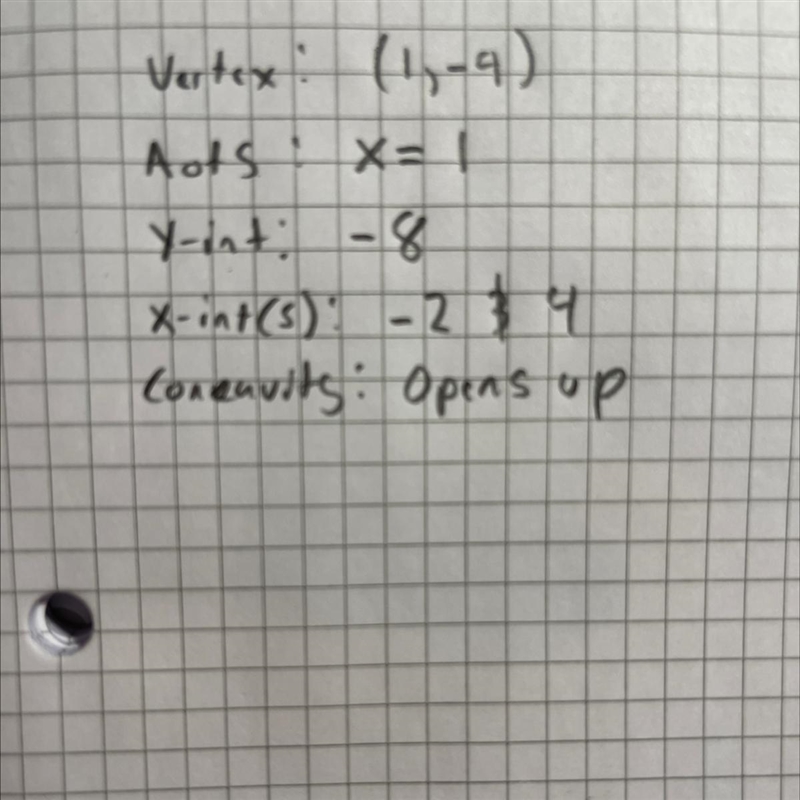 Vertex: (1,-9)
AofS: x=1
y-int: -8
x-int(s): -2 & 4
Concavity: Opens up